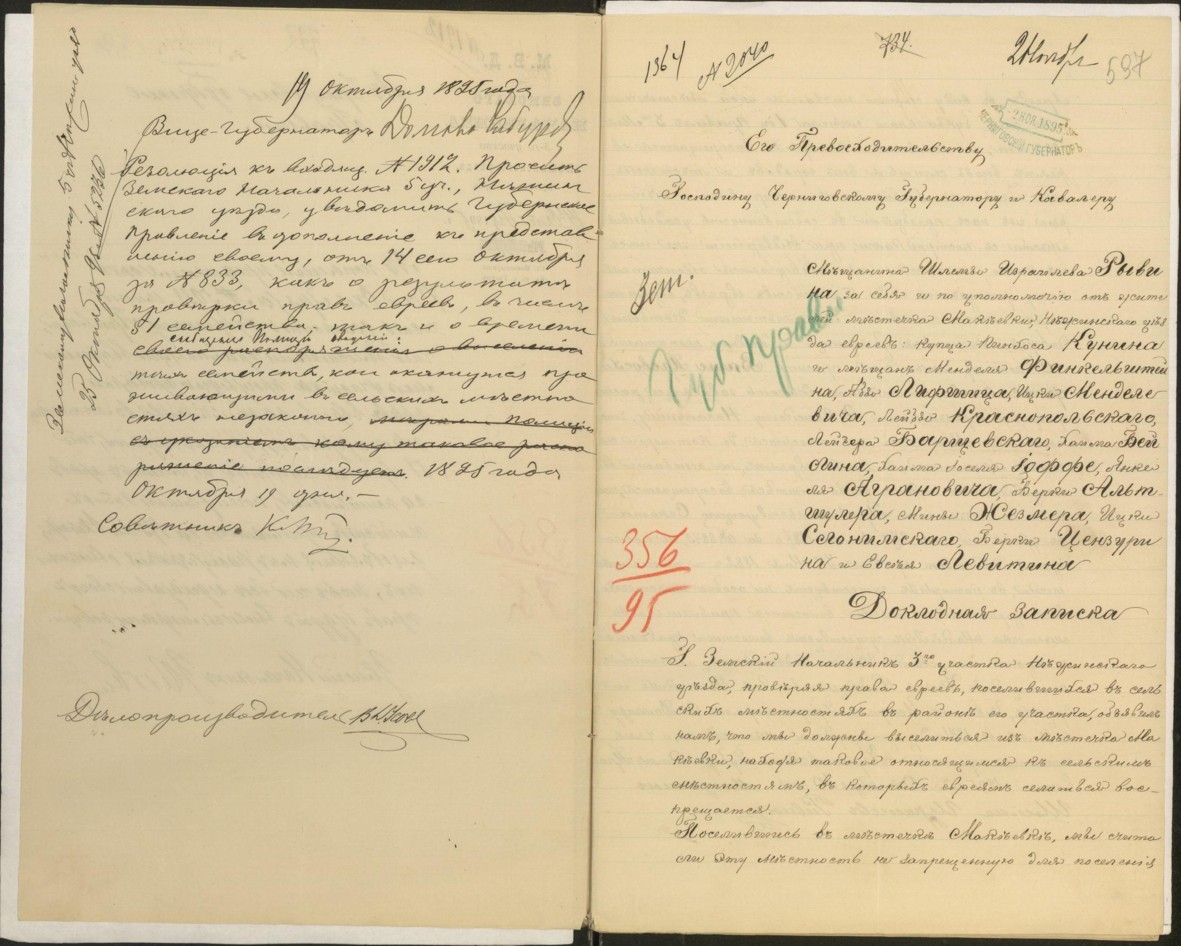 19 Октября 1895 года
Вице-Губернаторъ
Земскому Начальнику 5 уч. Нежин. уез.
25 Октября 1895 № 5276
Резолюція къ входящ. № 1912. Просить
Земскаго Начальника 5 уч., Нѣжин
скаго уѣзда, увѣдомить Губернское
Правленіе въ дополненіе къ представ
ленію своему, отъ 14 сего Октября
за № 833, какъ о результатѣ
провѣрки правъ евреевъ, въ числѣ
31 семейства, такъ и о времени
сообщенія Полиціи
своего распоряженія о выселеніи
тѣхъ семействъ, кои окажутся про
живающими въ сельскихъ мѣстно
стяхъ незаконно,
съ указаніемъ кому таковое распо
ряженіе послѣдуетъ. 1895 года
Октября 19 дня.—
Совѣтникъ
Дѣлопроизводитель
1364
№ 2040
734.
2 Ноября
597
2 НОЯ. 1895
ЧЕРНИГОВСКІЙ ГУБЕРНАТОРЪ
Его Превосходительству
Господину Черниговскому Губернатору и Кавалеру
Зем.
Губ Правл
Мѣщанина Шлемы Израилева Рыви
на за себя и по уполномочію отъ жите
лей мѣстечка Макѣевки, Нѣжинскаго уѣз
да евреевъ: купца Пинхоса Кунина
и мѣщанъ Менделя Финкельштей
на, Абы Лифшица, Ицки Менделе
вича, Лейзы Краснопольскаго,
Лейзера Барщевскаго, Хаима Бей
лина, Хаима Іоселя Іоффе, Янке
ля Аграновича, Берки Альт-
шулера, Мины Жезмера, Ицки
Сегонимскаго, Берки Цензури
на и Евсѣя Левитина
356
95
Докладная записка
Г. Земскій Начальникъ 5го участка Нѣжинскаго
уѣзда, провѣряя права евреевъ, поселившихся въ сель
скихъ мѣстностяхъ въ районѣ его участка, объявилъ
намъ, что мы должны выселиться изъ мѣстечка Ма
кѣевки, находя таковое относящимся къ сельскимъ
мѣстностямъ, въ которыхъ евреямъ селиться вос-
прещается.
Поселившись въ мѣстечкѣ Макѣевкѣ, мы счита
ли эту мѣстность не запрещенную для поселенія